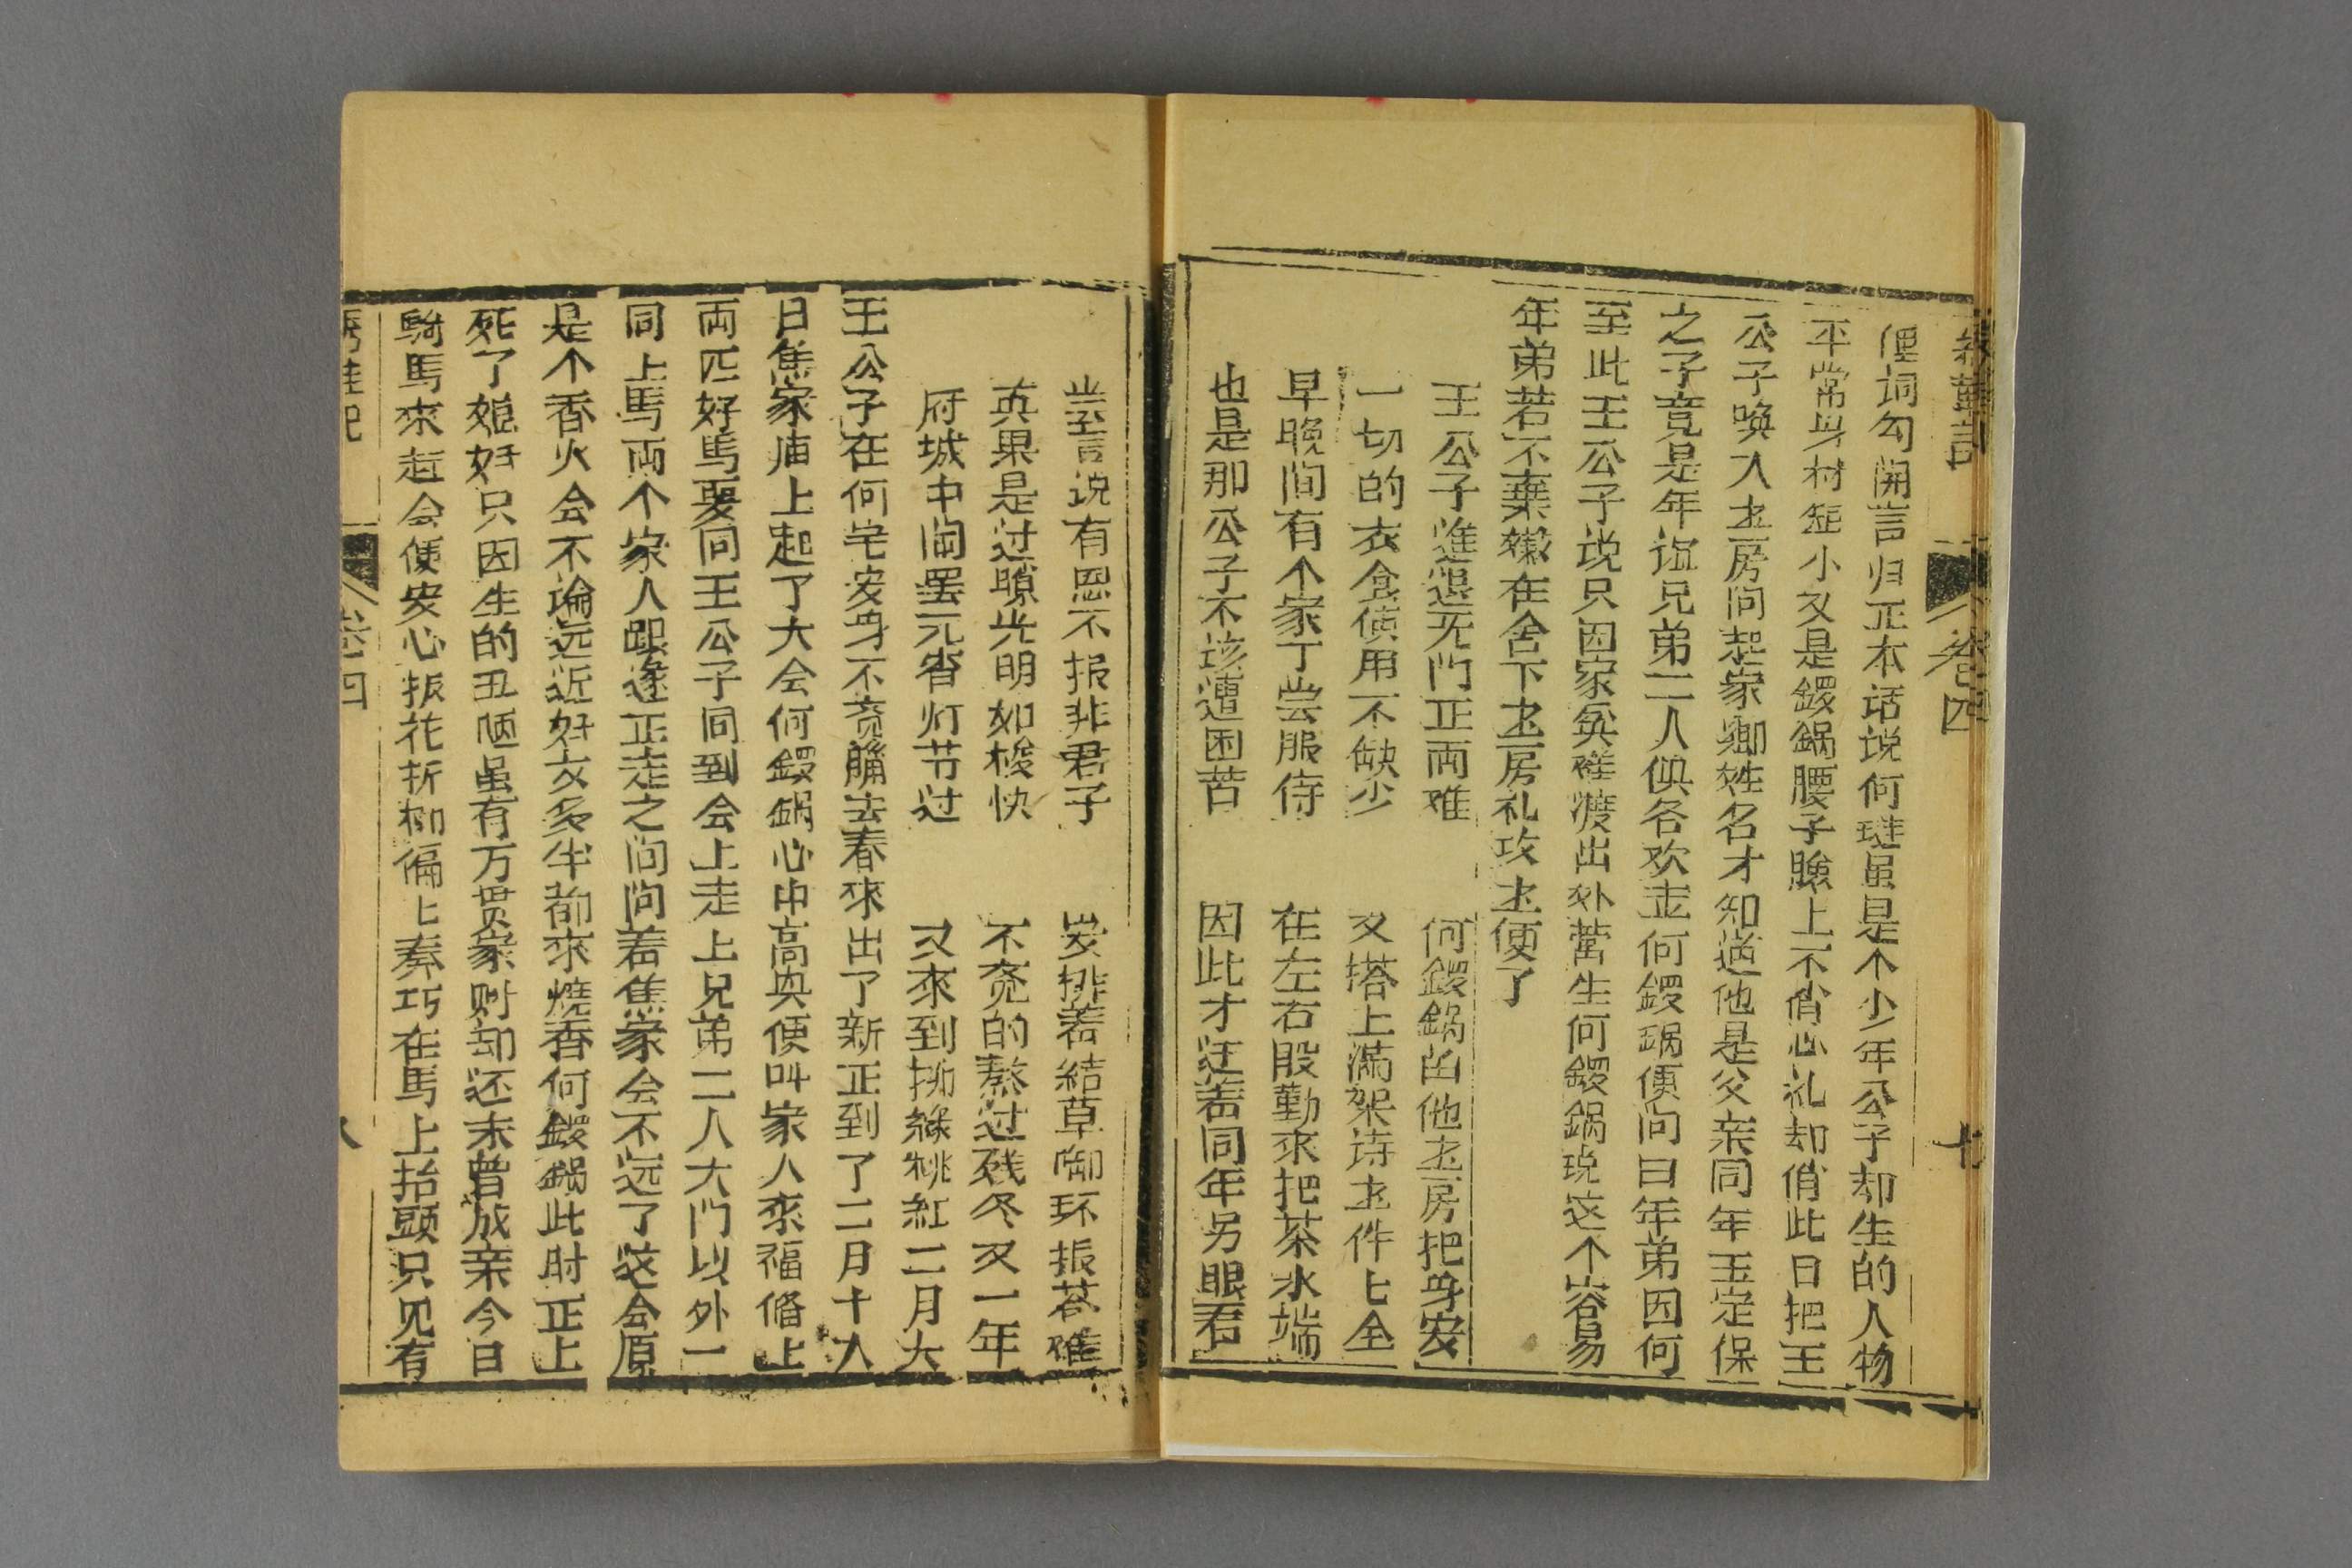 卷四
七
便词勾開言归正本话说何琏虽是个少年公子却生的人物
平常身材矬小又是鑼鍋腰子臉上不俏心礼却俏此日把王
公子唤入书房问起家鄉姓名才知道他是父亲同年王定保
之子竟是年谊兄弟二人俱各欢喜何鑼鍋便问曰年弟因何
至此王公子说只因家貧难渡出外营生何鑼鍋说这个容易
年弟若不棄嫌在舍下书房礼攻书便了
王公子進退无门正両难 何鑼鍋留他书房把身安
一切的衣食使用不缺少 又搭上滿架诗书件匕全
早晚间有个家丁尝服侍 在左右殷勤來把茶水端
也是那公子不该遭困苦 因此才遇着同年另眼看
岂言说有恩不报非君子 安排着結草啣环报荅难
真果是过隙光明如梭快 不觉的熬过残冬又一年
府城中闹罢元宵灯节过 又來到栁綠桃紅二月天
王公子在何宅安身不觉臘去春來出了新正到了二月十八
日焦家庙上起了大会何鑼鍋心中高兴便叫家人來福俻上
両匹好馬要同王公子同到会上走上兄弟二人大门以外一
同上馬両个家人跟遂正走之间问着焦家会不远了这会原
是个香火会不論远近好女多半都來燒香何鑼鍋此时正上
死了媳妇只因生的丑陋虽有万贯家财却还未曾成亲今日
騎馬來赶会便安心扳花折柳偏匕奏巧在馬上抬頭只见有
卷四
八